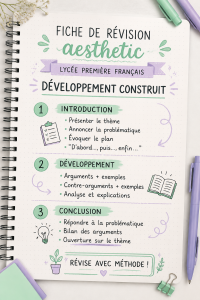 FICHE DE RÉVISION
aesthetic
LYCÉE PREMIÈRE FRANÇAIS
DÉVELOPPEMENT CONSTRUIT
1 INTRODUCTION
• Présenter le thème
• Annoncer la problématique
• Évoquer le plan
• "D'abord... puis... enfin..."
2 DÉVELOPPEMENT
• Arguments + exemples
• Contre-arguments + exemples
• Analyse et explications
3 CONCLUSION
• Répondre à la problématique
• Bilan des arguments
• Ouverture sur le thème
RÉVISE AVEC MÉTHODE !